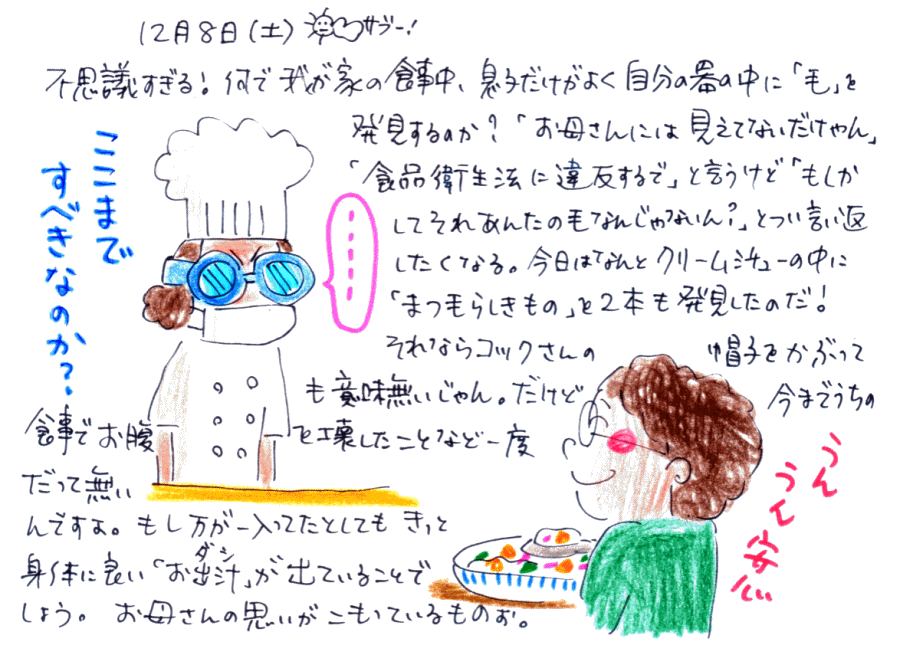 12月8日(土) サブー!
不思議すぎる!何で我が家の食事中、息子だけがよく自分の器の中に「毛」を
発見するのか?「お母さんには見えてないだけやん」
「食品衛生法に違反するで」と言うけど「もしか
してそれあんたの毛なんじゃないん?」とつい言い返
したくなる。今日はなんとクリームシチューの中に
「まつ毛らしきもの」を2本も発見したのだ!
それならコックさんの 帽子をかぶって
も意味無いじゃん。だけど 今までうちの
食事でお腹 を壊したことなど一度
だって無い
んですよ。もし万が一入ってたとしてもきっと
身体に良い「お出汁」が出ていることで
ダシ
しょう。 お母さんの思いがこもっているものぉ。
ここまで
すべきなのか?
うん
うん安心